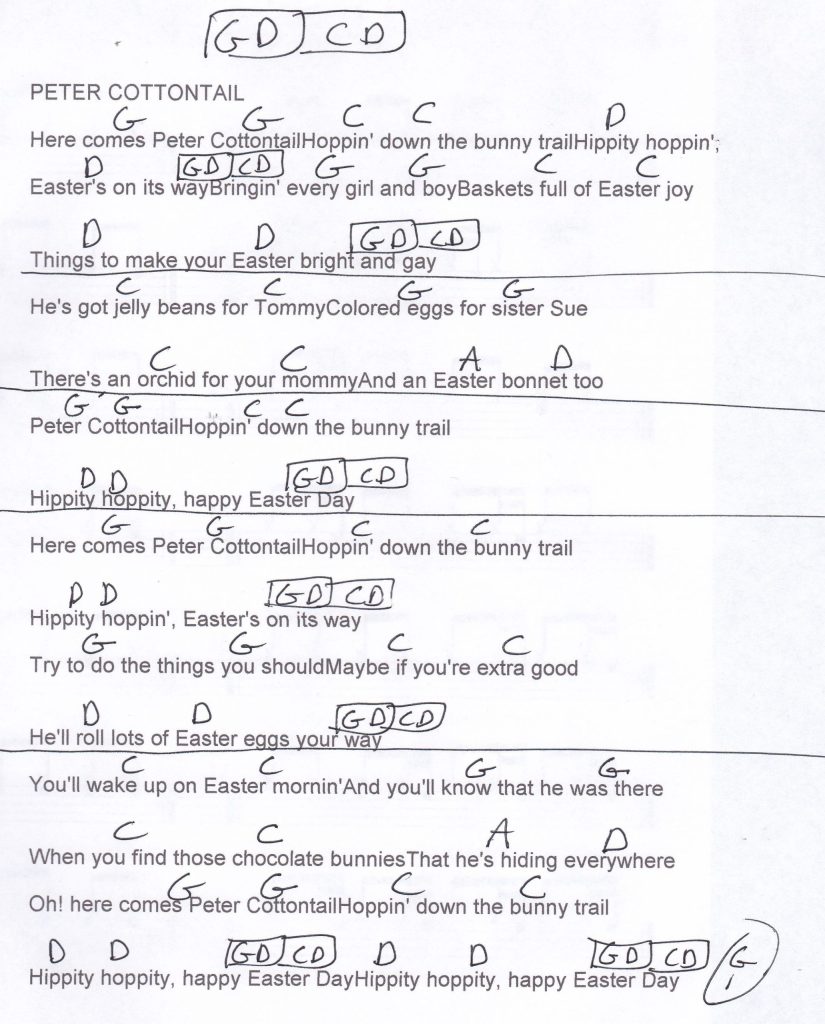 GD CD
PETER COTTONTAIL
G G C C D
Here comes Peter CottontailHoppin' down the bunny trailHippity hoppin',
D GD CD G G C C
Easter's on its wayBringin' every girl and boyBaskets full of Easter joy
D D GD CD
Things to make your Easter bright and gay
C C G G
He's got jelly beans for TommyColored eggs for sister Sue
C C A D
There's an orchid for your mommyAnd an Easter bonnet too
G G C C
Peter CottontailHoppin' down the bunny trail
D D GD CD
Hippity hoppity, happy Easter Day
G G C C
Here comes Peter CottontailHoppin' down the bunny trail
D D GD CD
Hippity hoppin', Easter's on its way
G G C C
Try to do the things you shouldMaybe if you're extra good
D D GD CD
He'll roll lots of Easter eggs your way
C C G G
You'll wake up on Easter mornin'And you'll know that he was there
C C A D
When you find those chocolate bunniesThat he's hiding everywhere
G G C C
Oh! here comes Peter CottontailHoppin' down the bunny trail
D D GD CD D D GD CD G
Hippity hoppity, happy Easter DayHippity hoppity, happy Easter Day
1